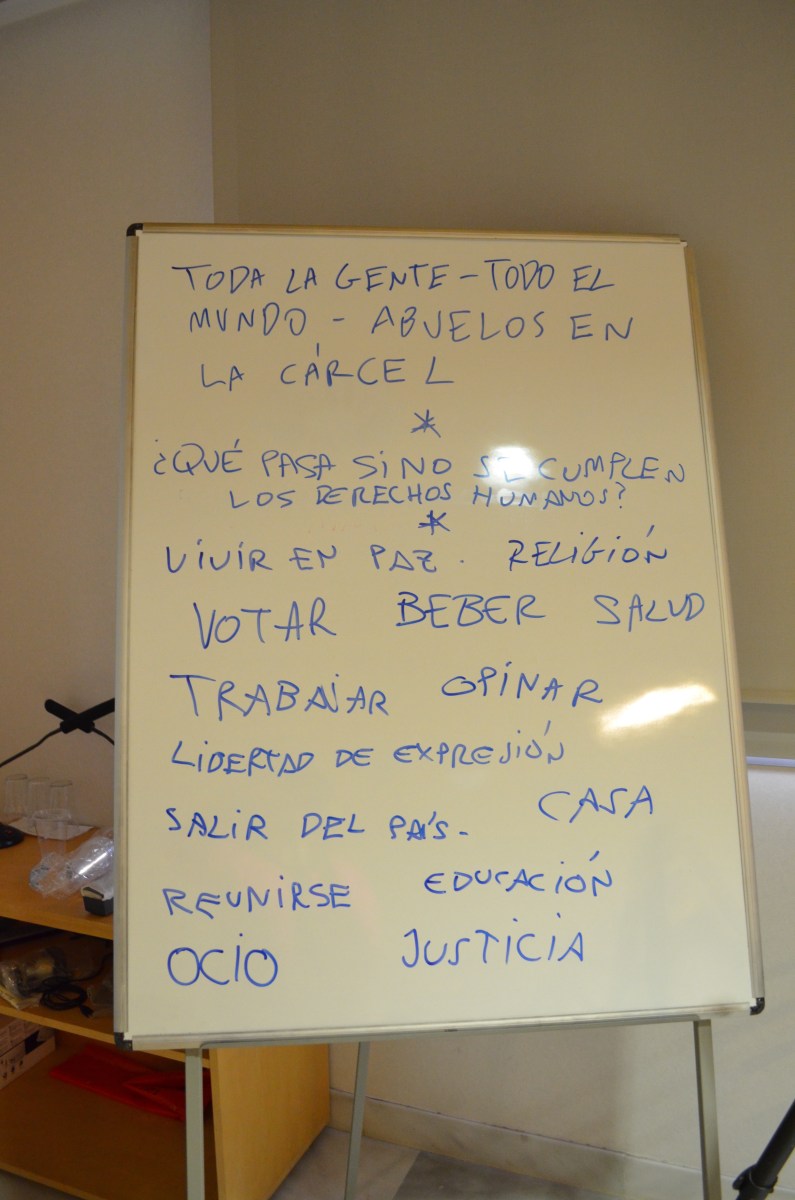 TODA LA GENTE - TODO EL
MUNDO - ABUELOS EN
LA CÁRCEL
*
¿QUÉ PASA SI NO SE CUMPLEN
LOS DERECHOS HUMANOS?
*
VIVIR EN PAZ. RELIGIÓN
VOTAR BEBER SALUD
TRABAJAR OPINAR
LIBERTAD DE EXPRESIÓN
CASA
SALIR DEL PAÍS-
REUNIRSE EDUCACIÓN
OCIO JUSTICIA